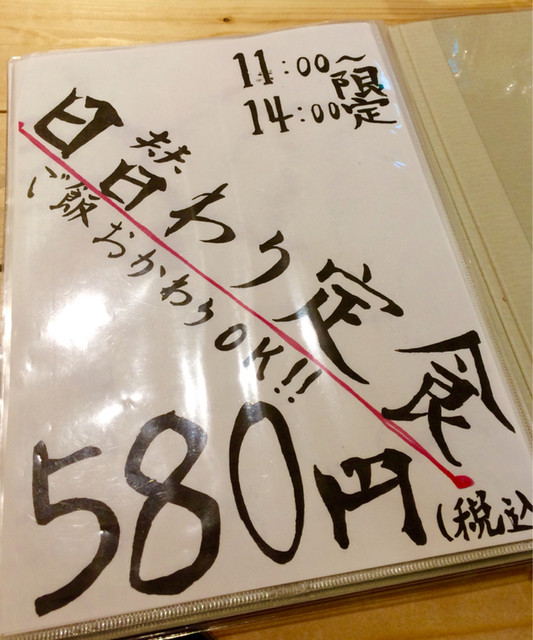 11:00〜
14:00限定
日替わり定食
ご飯おかわりOK!!
580円
(税込